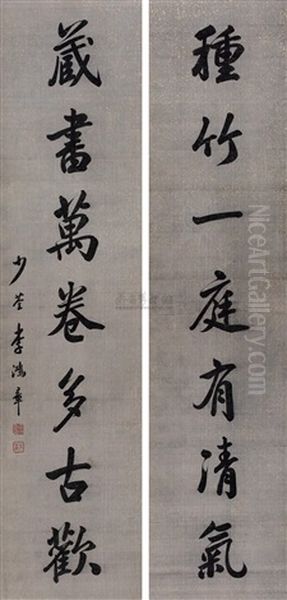 種竹一庭有清氣
藏書萬卷多古歡
少荃李鴻章
www.NiceArtGallery.com